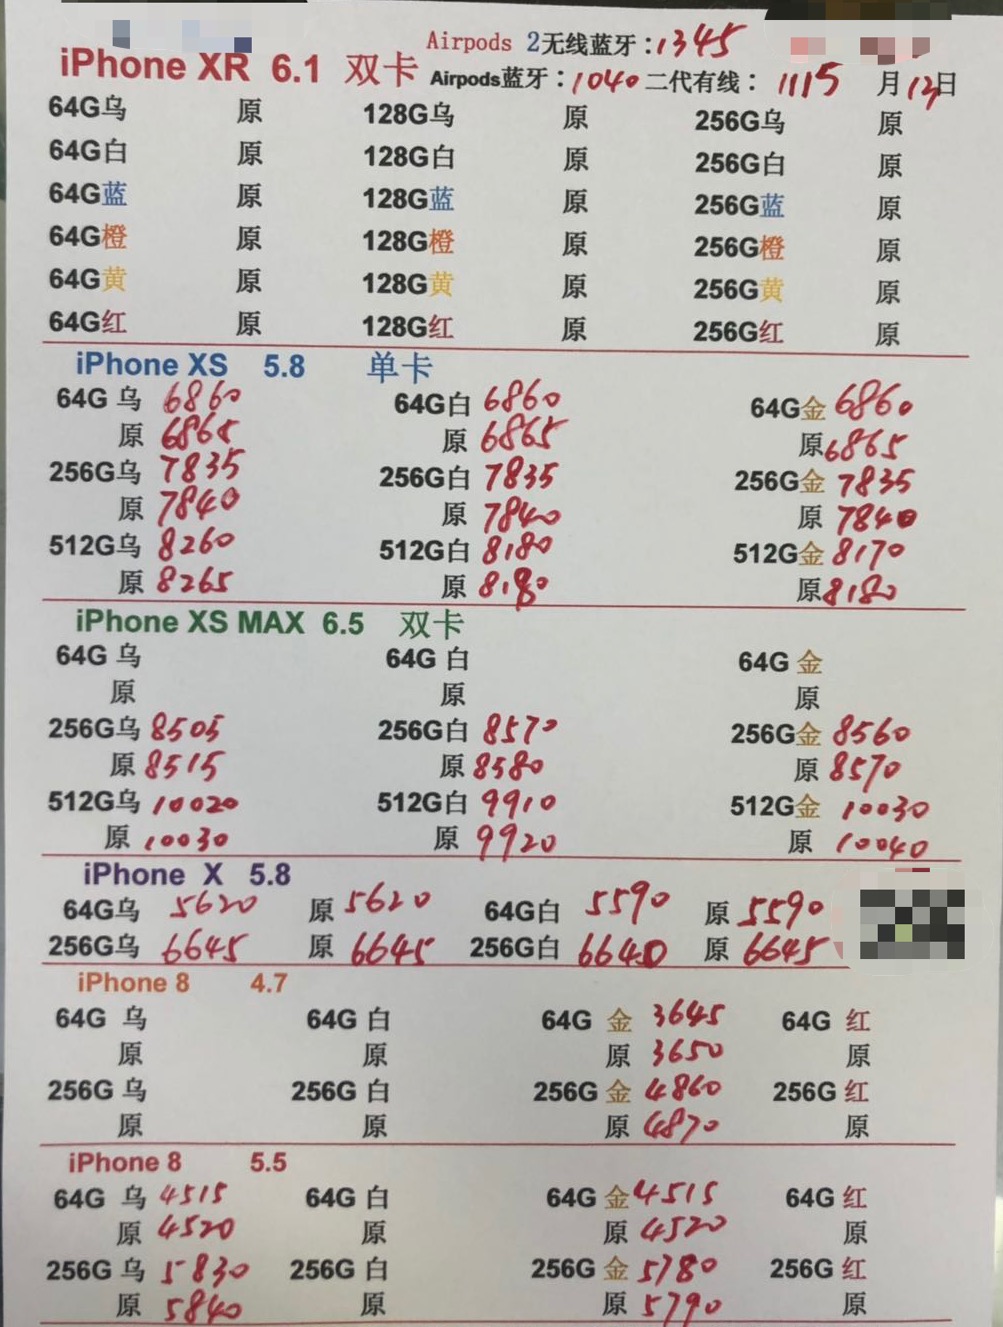 Airpods 2无线蓝牙:1345
iPhone XR 6.1 双卡 Airpods蓝牙:1040 二代有线: 1115 月12日
64G乌 原 128G乌 原 256G乌 原
64G白 原 128G白 原 256G白 原
64G蓝 原 128G蓝 原 256G蓝 原
64G橙 原 128G橙 原 256G橙 原
64G黄 原 128G黄 原 256G黄 原
64G红 原 128G红 原 256G红 原
iPhone XS 5.8 单卡
64G 乌 6860 64G白 6860 64G金 6860
原 6865 原 6865 原 6865
256G乌 7835 256G白 7835 256G金 7835
原 7840 原 7840 原 7840
512G乌 8260 512G白 8180 512G金 8170
原 8265 原 8180 原 8180
iPhone XS MAX 6.5 双卡
64G 乌 64G 白 64G 金
原 原 原
256G乌 8505 256G白 8570 256G金 8560
原 8515 原 8580 原 8570
512G乌 10020 512G白 9910 512G金 10030
原 10030 原 9920 原 10040
iPhone X 5.8
64G乌 5620 原 5620 64G白 5590 原 5590
256G乌 6645 原 6645 256G白 6640 原 6645
iPhone 8 4.7
64G 乌 64G 白 64G 金 3645 64G 红
原 原 原 3650 原
256G 乌 256G 白 256G 金 4860 256G 红
原 原 原 4870 原
iPhone 8 5.5
64G 乌 4515 64G 白 64G 金 4515 64G 红
原 4520 原 原 4520 原
256G 乌 5830 256G 白 256G 金 5780 256G 红
原 5840 原 原 5790 原